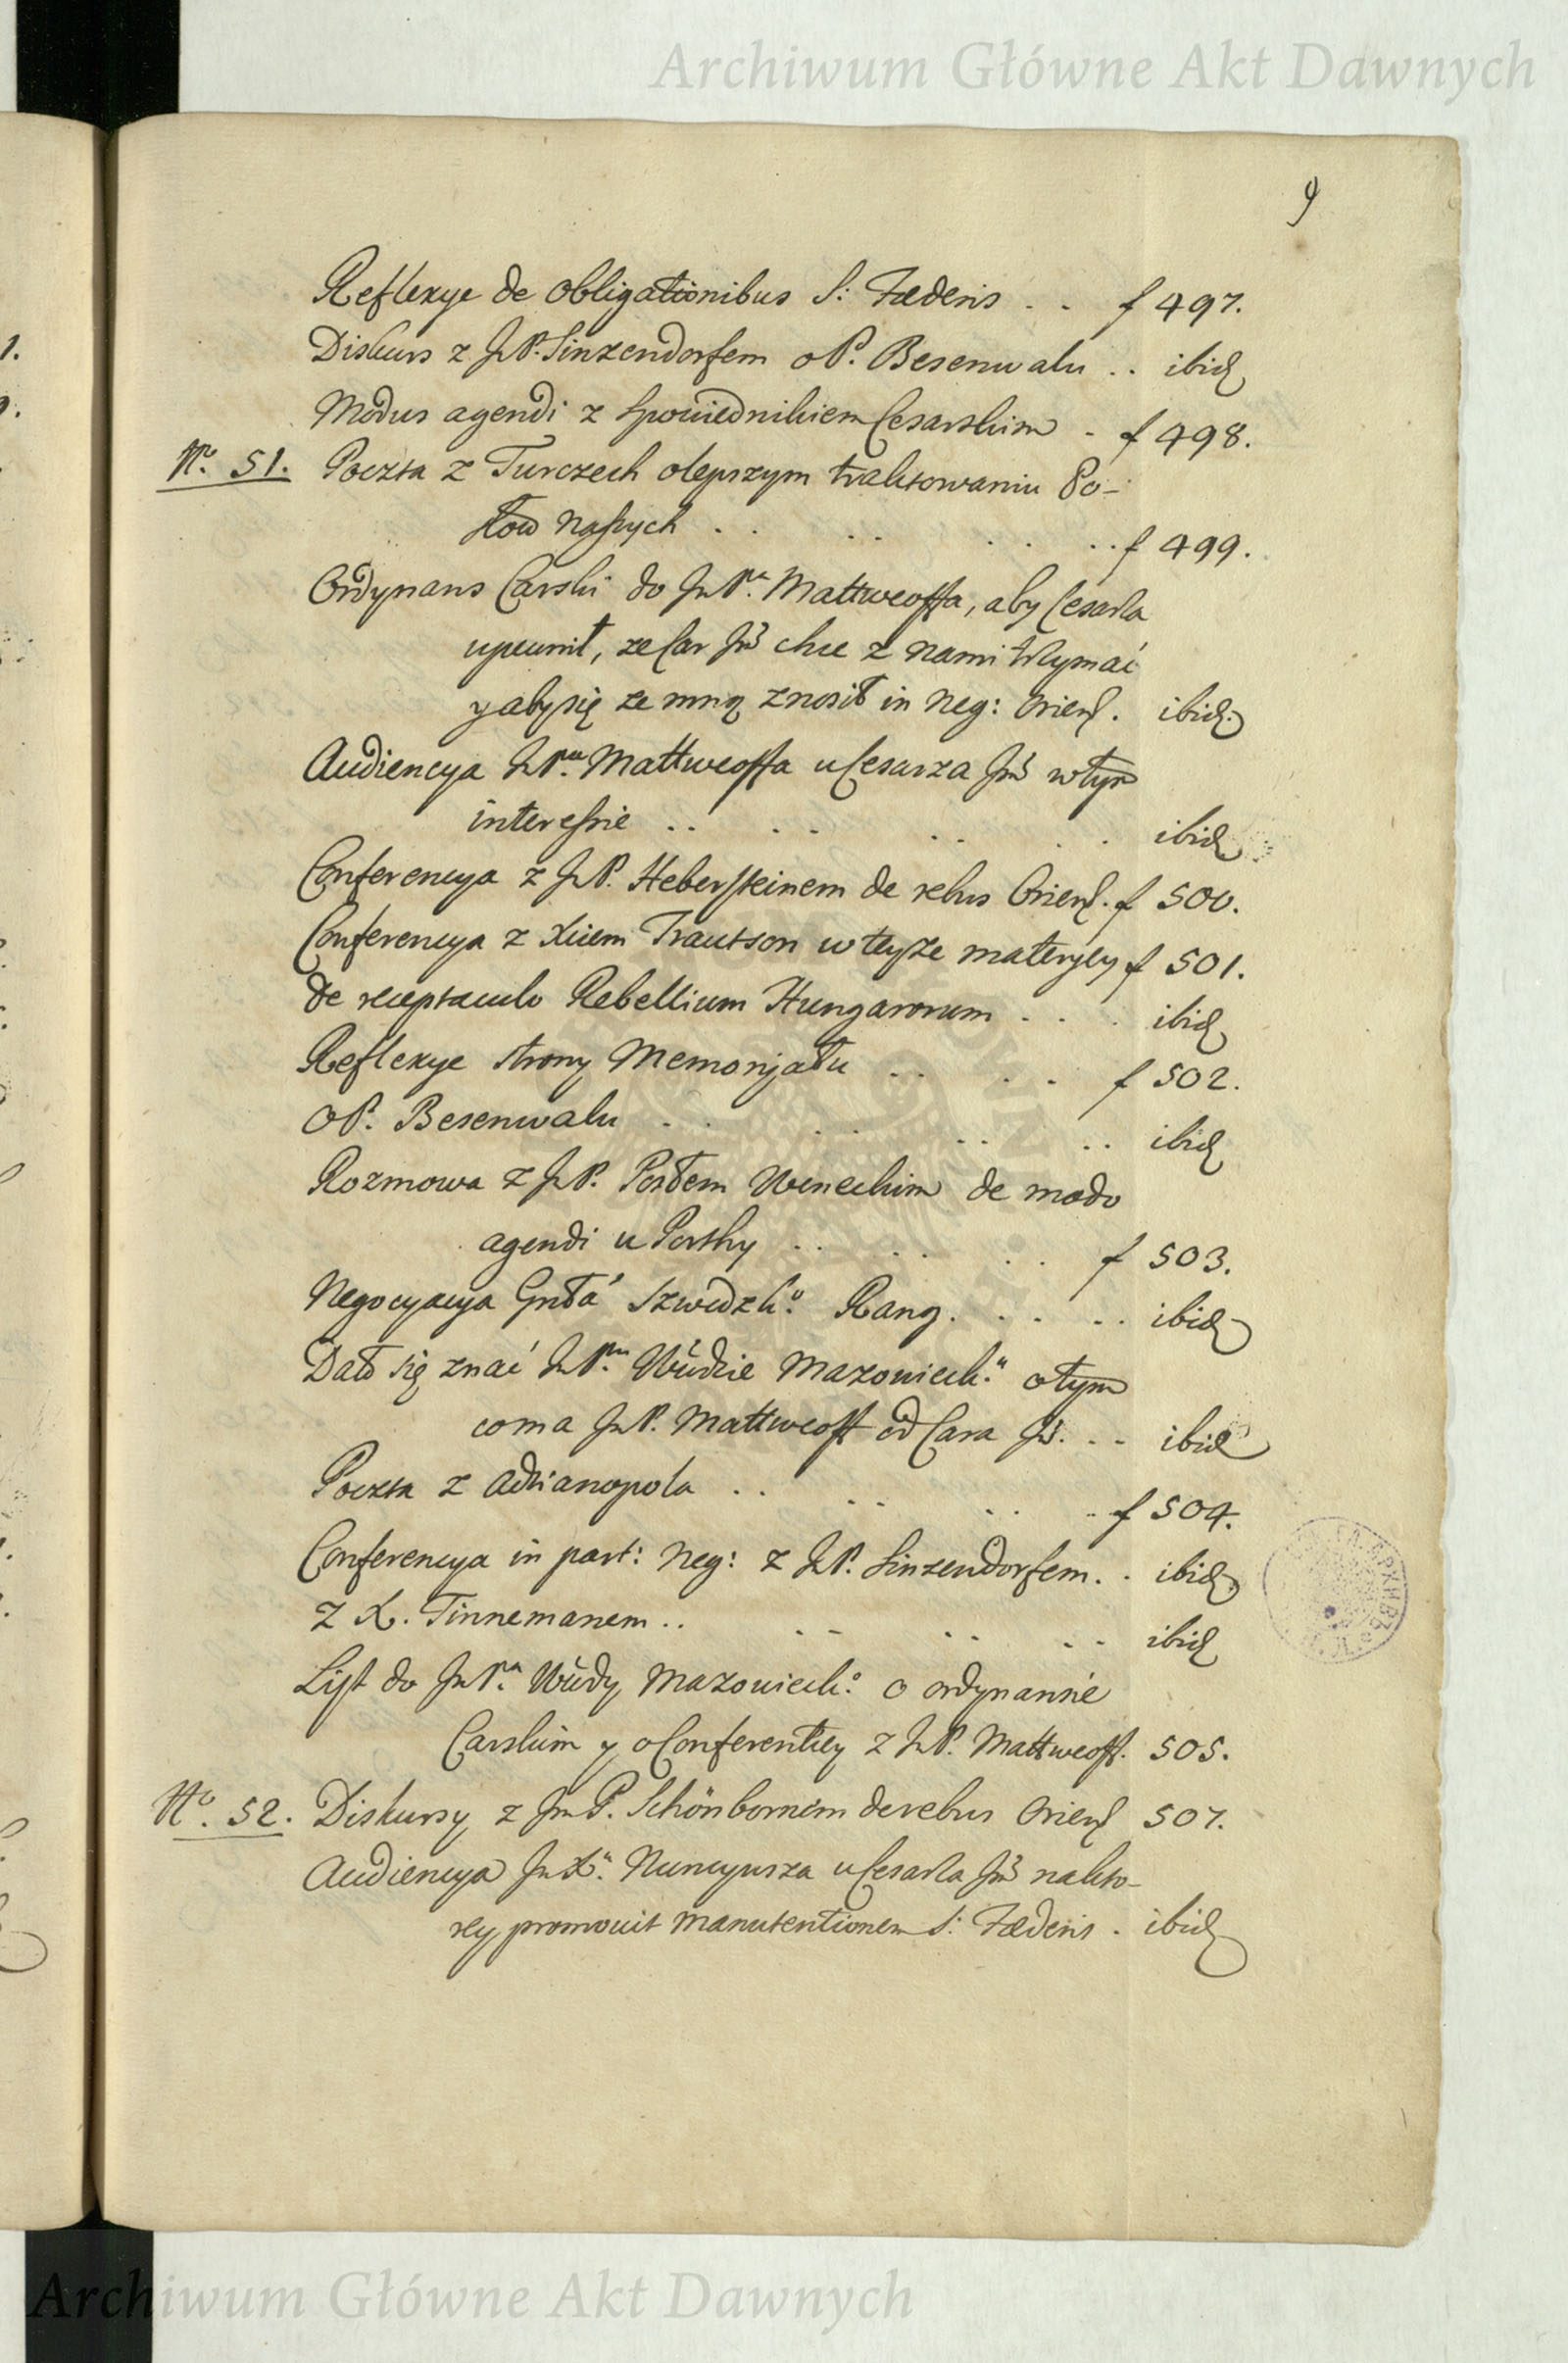 Archiwum Główne Akt Dawnych
9
Reflexye de obligationibus S: Fœderis . . f 497.
Diskurs z JP. Sinzendorfem o P. Besenwalu . . ibid
Modus agendi z Spowiednikiem Cesarskim . f 498.
No. 51. Poczta z Turczech o lepszym traktowaniu Po-
słow naszych . . . . . . . f 499.
Ordynans Carski do JmPa. Mattweoffa, aby Cesarza
upewnił, ze Car Jmć chce z nami trzymać
y aby się ze mną znosił in neg: Orient. ibid.
Audiencya JmPa. Mattweoffa u Cesarza Jmć w tym
interessie . . . . . . . ibid
Conferencya z JmP. Hebersteinem de rebus Orient. f 500.
Conferencya z Xciem Trautson w teyże materyey f 501.
de receptaculo Rebellium Hungarorum . . . ibid
Reflexye strony Memoryału . . . . f 502.
O P. Besenwalu . . . . . . . . ibid
Rozmowa z JmP. Posłem Weneckim de modo
agendi u Porthy . . . . . . f 503.
Negocyacya Gnła Szwedzko. Rang . . . . . ibid
Dało się znać JmPu. Wdzie Mazowieck. o tym
co ma JmP. Mattweoff od Cara Jmć. . . ibid
Poczta z Adrianopola . . . . . . . f 504.
Conferencya in part: neg: z JmP. Sinzendorfem. . ibid
z X. Tinnemanem . . . . . . . . ibid
List do JmPa. Wdy Mazowieck. o ordynansie
Carskim y o Conferentiey z JmP. Mattweoff. 505.
No. 52. Diskursy z JmP. Schönbornem de rebus Orient 507.
Audiencya JmXa. Nuncyusza u Cesarza Jmć na kto-
rey promovit manutentionem S: Fœderis . ibid
Archiwum Główne Akt Dawnych